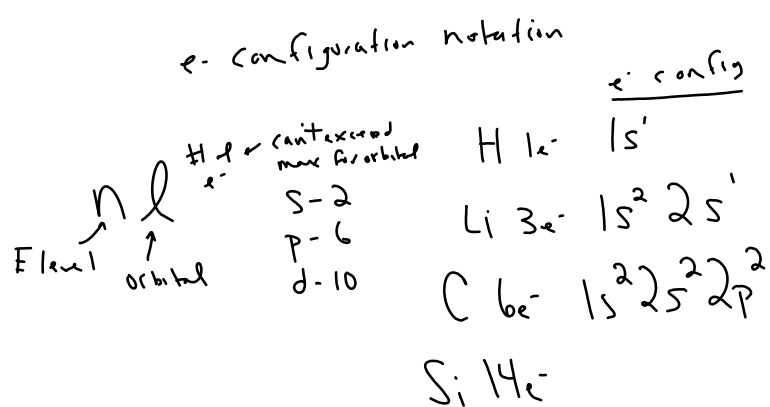 e- configuration notation
e- config
# of e- can't exceed max for orbital
nl
E level
orbital
s-2
p-6
d-10
H 1e- 1s¹
Li 3e- 1s² 2s¹
C 6e- 1s² 2s² 2p²
Si 14e-